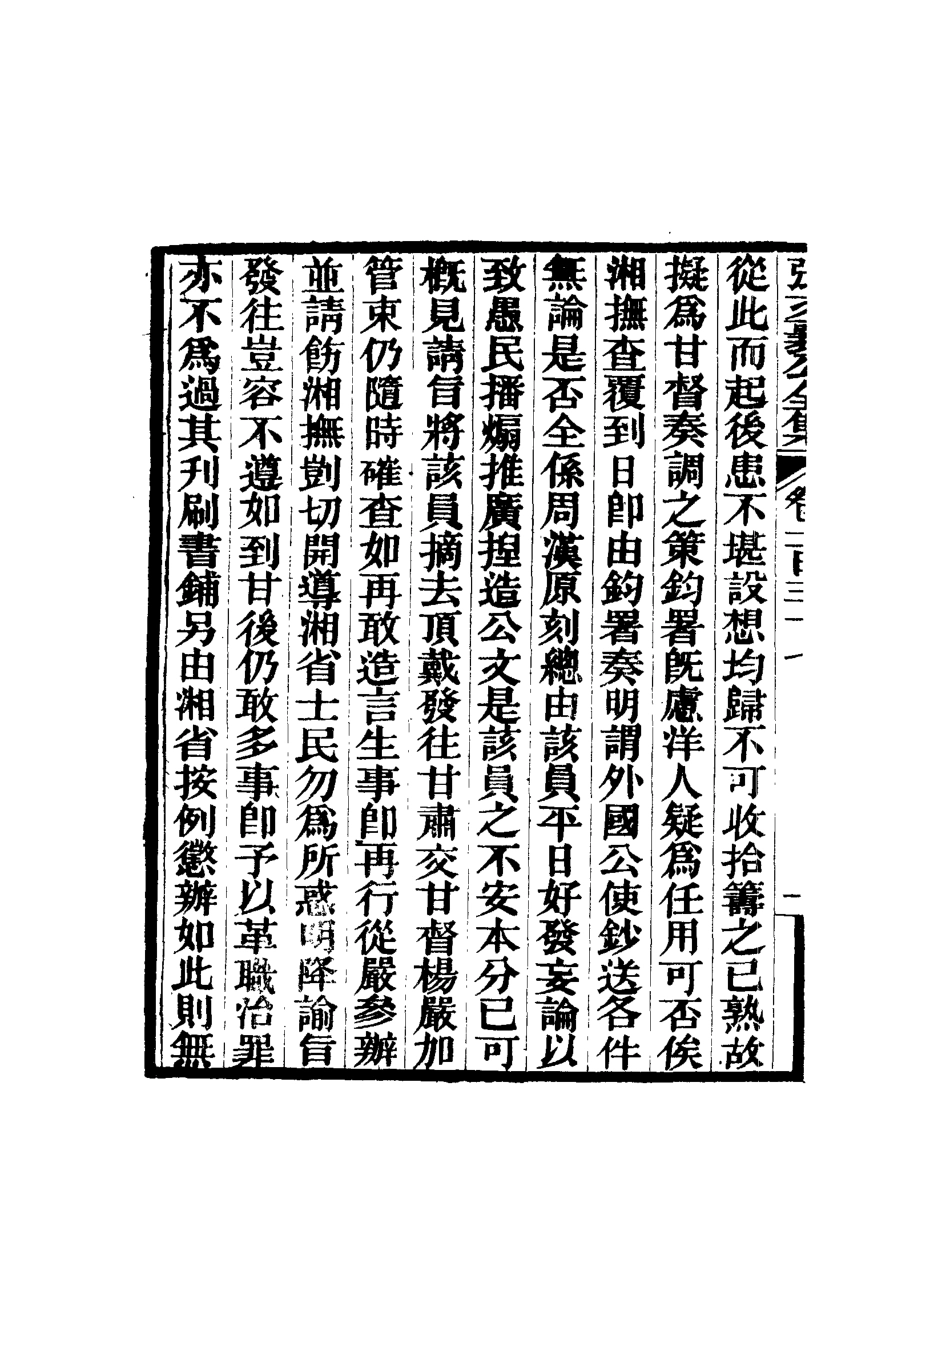 張文襄公全集 卷一百三十一 二
從此而起後患不堪設想均歸不可收拾籌之已熟故
擬爲甘督奏調之策鈞署旣慮洋人疑爲任用可否俟
湘撫查覆到日卽由鈞署奏明謂外國公使鈔送各件
無論是否全係周漢原刻總由該員平日好發妄論以
致愚民播煽推廣揑造公文是該員之不安本分已可
槪見請旨將該員摘去頂戴發往甘肅交甘督楊嚴加
管束仍隨時確查如再敢造言生事卽再行從嚴參辦
並請飭湘撫剴切開導湘省士民勿爲所惑明降諭旨
發往豈容不遵如到甘後仍敢多事卽予以革職治罪
亦不爲過其刋刷書鋪另由湘省按例懲辦如此則無